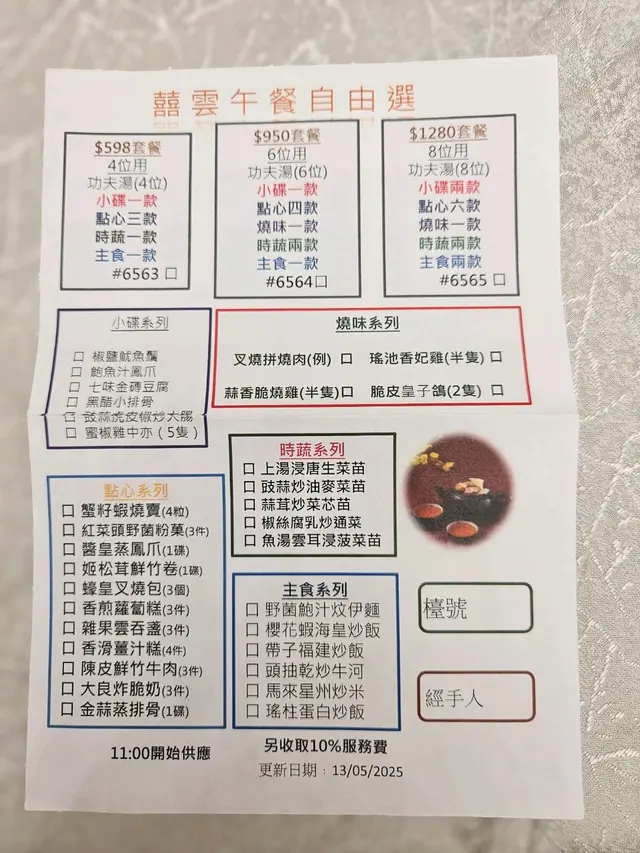 囍雲午餐自由選
$598套餐
4位用
功夫湯(4位)
小碟一款
點心三款
時蔬一款
主食一款
#6563 口
$950套餐
6位用
功夫湯(6位)
小碟一款
點心四款
燒味一款
時蔬兩款
主食一款
#6564口
$1280套餐
8位用
功夫湯(8位)
小碟兩款
點心六款
燒味一款
時蔬兩款
主食兩款
#6565 口
小碟系列
口 椒鹽魷魚鬚
口 鮑魚汁鳳爪
口 七味金磚豆腐
口 黑醋小排骨
口 豉蒜虎皮椒炒大腸
口 蜜椒雞中亦（5隻）
燒味系列
叉燒拼燒肉(例) 口 瑤池香妃雞(半隻)口
蒜香脆燒雞(半隻)口 脆皮皇子鴿(2隻) 口
時蔬系列
口 上湯浸唐生菜苗
口 豉蒜炒油麥菜苗
口 蒜茸炒菜芯苗
口 椒絲腐乳炒通菜
口 魚湯雲耳浸菠菜苗
點心系列
口 蟹籽蝦燒賣(4粒)
口 紅菜頭野菌粉菓(3件)
口 醬皇蒸鳳爪(1碟)
口 姬松茸鮮竹卷(1碟)
口 蠔皇叉燒包(3個)
口 香煎蘿蔔糕(3件)
口 雜果雲吞盞(3件)
口 香滑薑汁糕(4件)
口 陳皮鮮竹牛肉(3件)
口 大良炸脆奶(3件)
口 金蒜蒸排骨(1碟)
主食系列
口 野菌鮑汁炆伊麵
口 櫻花蝦海皇炒飯
口 帶子福建炒飯
口 頭抽乾炒牛河
口 馬來星州炒米
口 瑤柱蛋白炒飯
檯號
經手人
11:00開始供應
另收取10%服務費
更新日期：13/05/2025